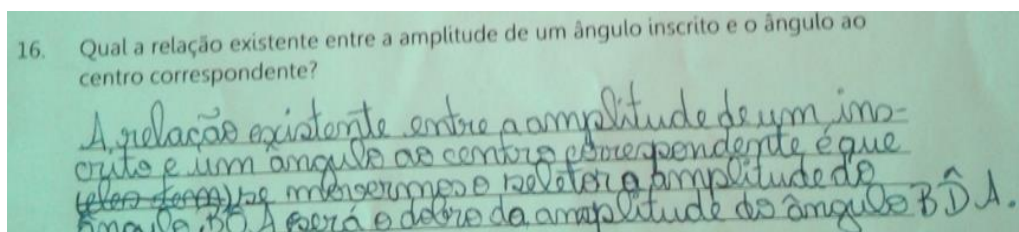 16. Qual a relação existente entre a amplitude de um ângulo inscrito e o ângulo ao
centro correspondente?
A relação existente entre a amplitude de um ins-
crito e um ângulo ao centro correspondente é que
se a amplitude do
ângulo BÔA será o dobro da amplitude do ângulo BD̂A.